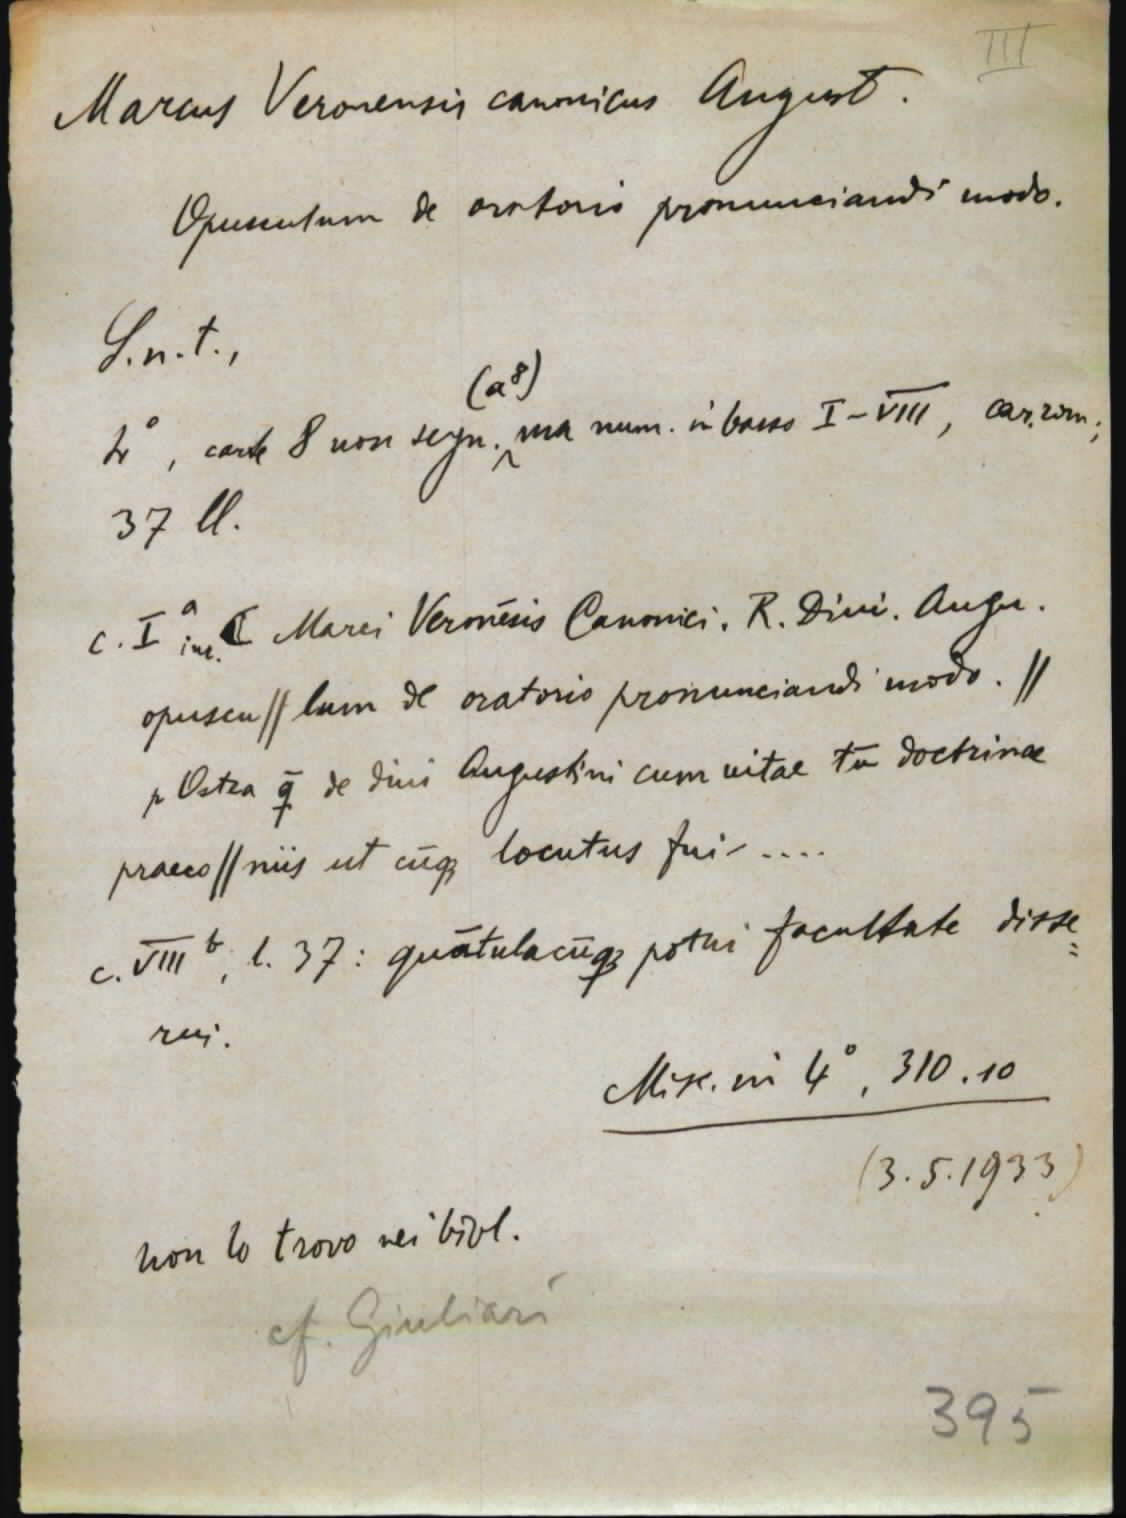 III
Marcus Veronensis canonicus August.
Opusculum de oratorio pronunciandi modo.
S.n.t.,
(a⁸)
4°, carte 8 non segn. ma num. in basso I–VIII, car. rom;
37 ll.
c. Iᵃ inc. ₵ Marci Veronēsis Canonici. R. Divi. Augu.
opuscu//lum de oratorio pronunciandi modo. //
pOstea q̄ de divi Augustini cum vitae tū doctrinae
praeco//niis ut cūqꝫ locutus fui ....
c. VIIIᵇ, l. 37: quātulacūqꝫ potui facultate disse=
rui.
Misc. in 4°, 310.10
(3.5.1933)
non lo trovo nei bibl.
cf. Giuliari
395